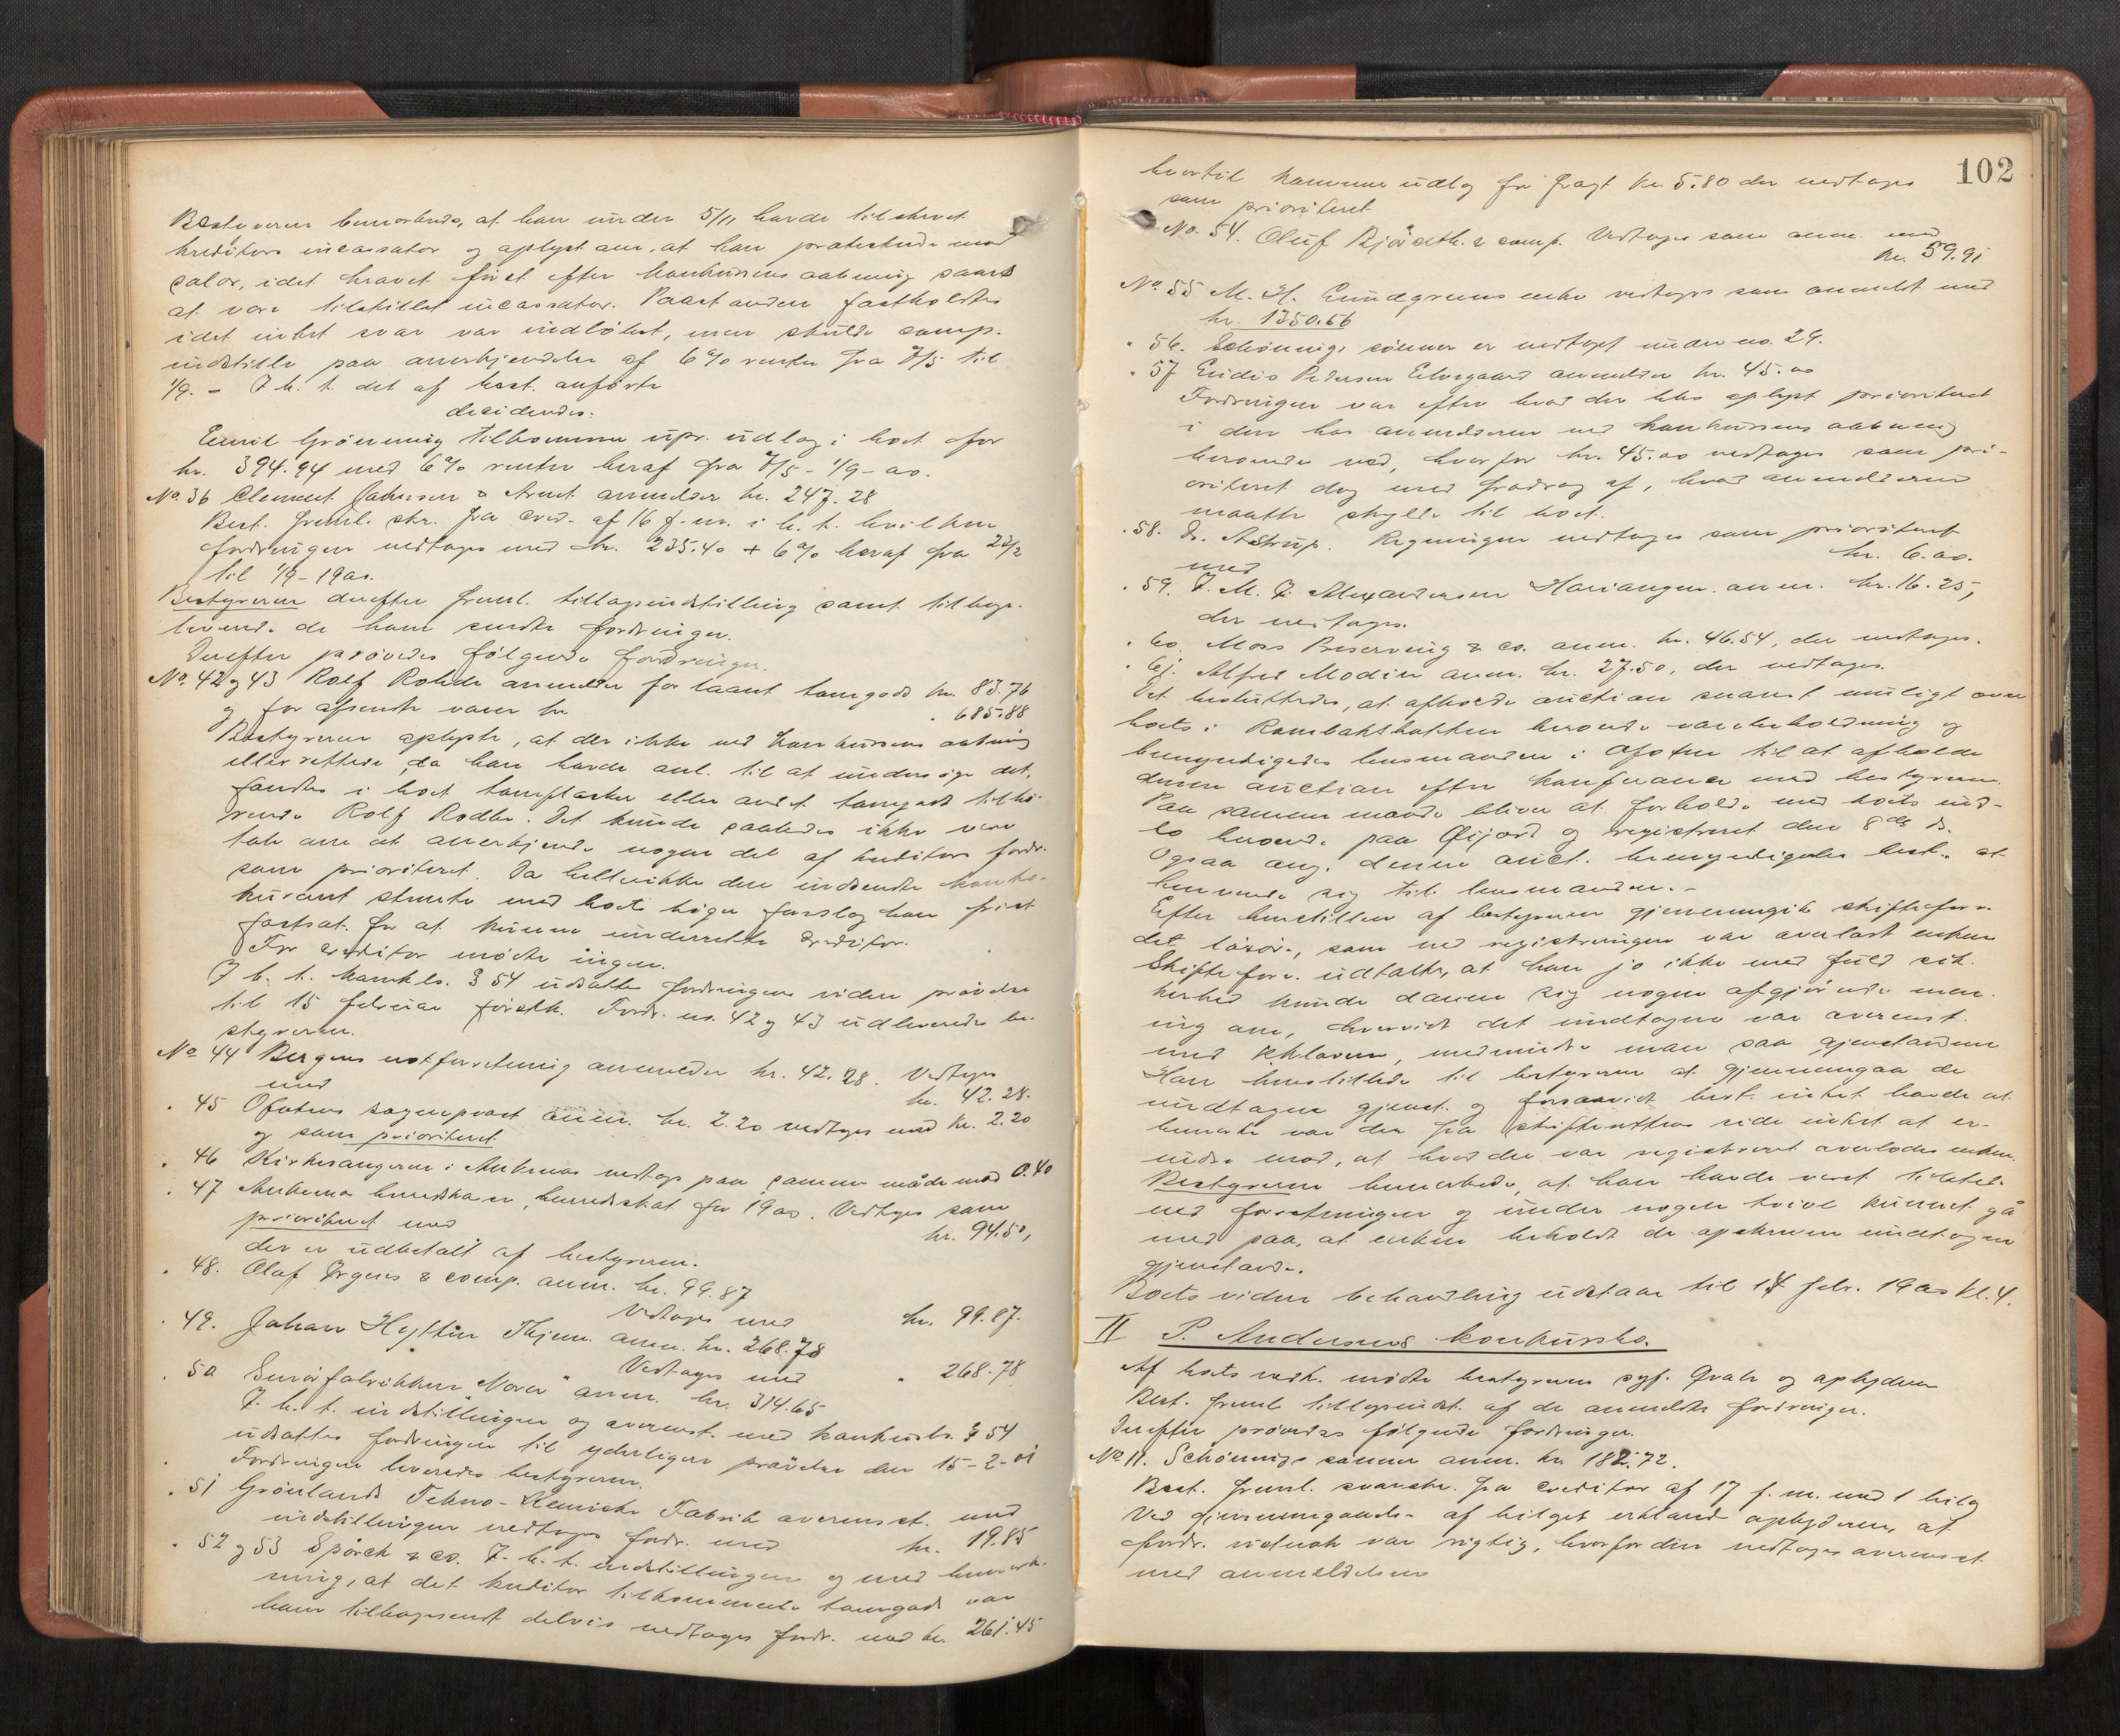 Bestyreren bemærkede, at han under 5/11 havde tilskrevet
kreditors incassator og oplyst om, at han protesterede mod
salær, idet kravet først efter konkursens aabning saaes
at være tilstillet incassator. Paastanden fastholdtes
idet intet svar var indløbet, men skulde comp.
indstille paa anerkjendelse af 6 % renter fra 7/5 til
1/9. – I h. t. det af best. anførte
decideredes:
Emil Grönning tilkommer upr. udlæg i boet for
kr. 394.94 med 6 % renter heraf fra 7/5 - 1/9 - 00.
No. 36 Clement Johnsen & Arnt anmelder kr. 247.28
Best. freml. skr. fra cred. af 16 f. m. i h. t. hvilken
fordringen vedtages med kr. 235.40 + 6 % heraf fra 22/2
til 1/9 - 1900.
Bestyreren derefter freml. tillægsindstilling samt tilbage-
leverede de ham sendte fordringer.
Derefter prøvedes følgende fordringer.
No. 42 og 43 Rolf Rohde anmelder for laant tomgods kr. 83.76
og for afsendte varer kr. 685.88
Bestyreren oplyste, at der ikke ved konkursens aabning
eller rettere, da han havde anl. til at undersøge det,
fandtes i boet tomflasker eller andet tomgods tilhø-
rende Rolf Rodhe. Det kunde saaledes ikke være
tale om at anerkjende nogen del af kreditors fordr.
som prioriteret. Da hellerikke den indsendte konto-
kurant stemte med boets bøger foreslog han frist
fastsat for at kunne underrette kreditor.
For creditor mødte ingen.
I h. t. konkls. § 54 udsattes fordringens videre prøvelse
til 15 februar førstk. Fordr. no. 42 og 43 udleveredes be-
styreren.
No 44 Bergens notforretning anmelder kr. 42.28. Vedtages
med kr. 42.28.
. 45 Ofotens sogneprest anm. kr. 2.20 vedtages med kr. 2.20
og som prioriteret
. 46 Kirkesangeren i Ankenes vedtages paa samme måde med 0.40
. 47 Ankenes herredskasse, herredsskat for 1900. Vedtages som
prioriteret med kr. 94.50,
der er udbetalt af bestyreren.
. 48. Olaf Ørgens & comp. anm. kr. 99.87
Vedtages med kr. 99.87.
. 49. Johan Hyttin Thjem. anm. kr. 268.78
Vedtages med . 268.78
. 50 Smörfabrikken "Nora" anm. kr. 314.65
I h. t. indstillingen og overenst. med konkursls. § 54
udsattes fordringen til yderligere prøvelse den 15-2-01
Fordringen leveredes bestyreren.
. 51 Grönlands Tekno-Kemiske Fabrik overensst. med
indstillingen vedtages fordr. med kr. 19.85
. 52 og 53 Spörck & co. I h. t. indstillingen og med bemærk-
ning, at det kreditor tilkommende tomgods var
ham tilbagesendt delvis vedtages fordr. med kr. 261.45
102
hvortil kommer udlæg for fragt kr. 5.80 der vedtages
som prioriteret
No. 54. Oluf Björaeth & comp. Vedtages som anm. med
kr. 59.91
No. 55 M. H. Lundgreens enke vedtages som anmeldt med
kr. 1350.56
. 56. Schönnings sönner er vedtaget under no. 29.
. 57 Eidis Pedersen Elvegaard anmelder kr. 45.00
Fordringen var efter hvad der blev oplyst prioriteret
i den hos anmelderen ved konkursens aabning
beroende ved, hvorfor kr. 45.00 vedtages som pri-
oriteret dog med fradrag af, hvad anmelderen
maatte skylde til boet.
. 58. Dr. Astrup. Regningen vedtages som prioriteret
med kr. 6.00.
. 59. J. M. J. Alexandersen Hariangen. anm. kr. 16.25,
der vedtages.
. 60. Moss Preserving & co. anm. kr. 46.54, der vedtages.
. 61. Alfred Modin anm. kr. 27.50, der vedtages.
Det besluttedes, at afholde auction snarest muligt over
boets i Rombaksbotten beroende varebeholdning og
bemyndigedes lensmanden i Ofoten til at afholde
denne auction efter konferance med bestyreren.
Paa samme maade bliver at forholde med boets ind-
bo beroende paa Øijord og registreret den 8de ds.
Ogsaa ang. denne auct. bemyndigedes best. at
henvende sig til lensmanden. –
Efter henstillen af bestyreren gjennemgik skifteforv.
det løsøre, som ved registreringen var overladt enken
Skifteforv. udtalte, at han jo ikke med fuld sik-
kerhed kunde danne sig nogen afgjørende men-
ing om, hvorvidt det undtagne var overenst.
med kkloven, medmindre man saa gjenstandene
Han henstillede til bestyreren at gjennemgaa de
undtagne gjenst. og forsaavidt best. intet havde at
bemærke var der fra skifterettens side intet at er-
indre mod, at hvad der var registreret overlodes enken.
Bestyreren bemærkede, at han havde været tilstede
ved forretningen og under nogen tvivl kunnet gå
med paa, at enken beholdt de opskrevne undtagne
gjenstande.
Boets videre behandling udstaar til 15 febr. 1900 kl. 4.
II P. Andersens konkursbo.
Af boets vedk. mødte bestyreren sagf. Qvale og opbyderen
Best. freml. tillægsindst. af de anmeldte fordringer.
Derefter prøvedes følgende fordringer.
No 11. Schönnings sönner anm. kr. 182.72.
Best. freml. svarskr. fra creditor af 17 f. m. med 1 bilag
Ved gjennemgaaelse af bilaget erklærede opbyderen, at
fordr. vistnok var rigtig, hvorfor den vedtages overensst.
med anmeldelsen